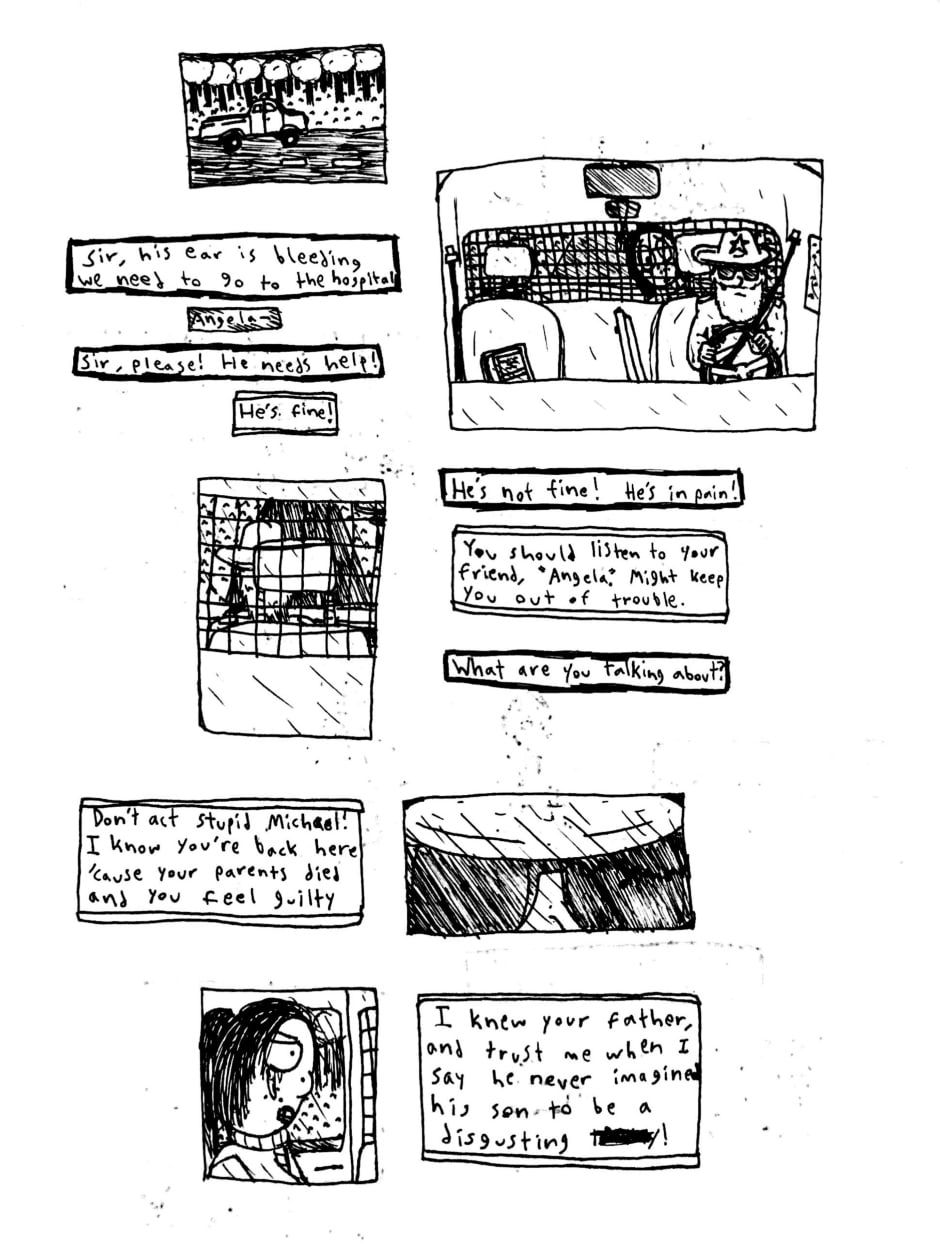 Sir, his ear is bleeding
we need to go to the hospital
Angela-
Sir, please! He needs help!
He's fine!
He's not fine! He's in pain!
You should listen to your
friend, "Angela". Might keep
you out of trouble.
What are you talking about?
Don't act stupid Michael!
I know you're back here
'cause your parents died
and you feel guilty
I knew your father,
and trust me when I
say he never imagined
his son to be a
disgusting